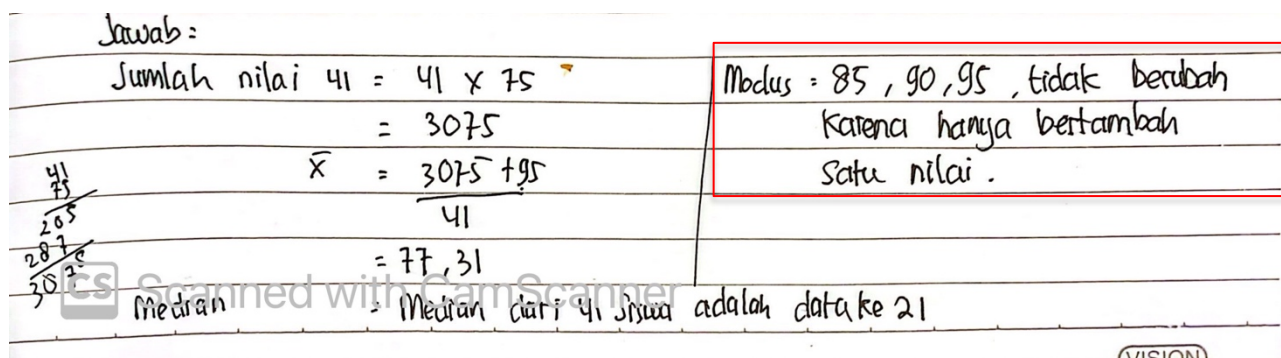 Jawab :
Jumlah nilai 41 = 41 x 75
= 3075
x̄ = 3075 + 95
41
= 77,31
Median = Median dari 41 siswa adalah data ke 21
Modus : 85, 90, 95, tidak berubah
Karena hanya bertambah
Satu nilai.
41
75
205
287
3075
CS Scanned with CamScanner
(VISION)